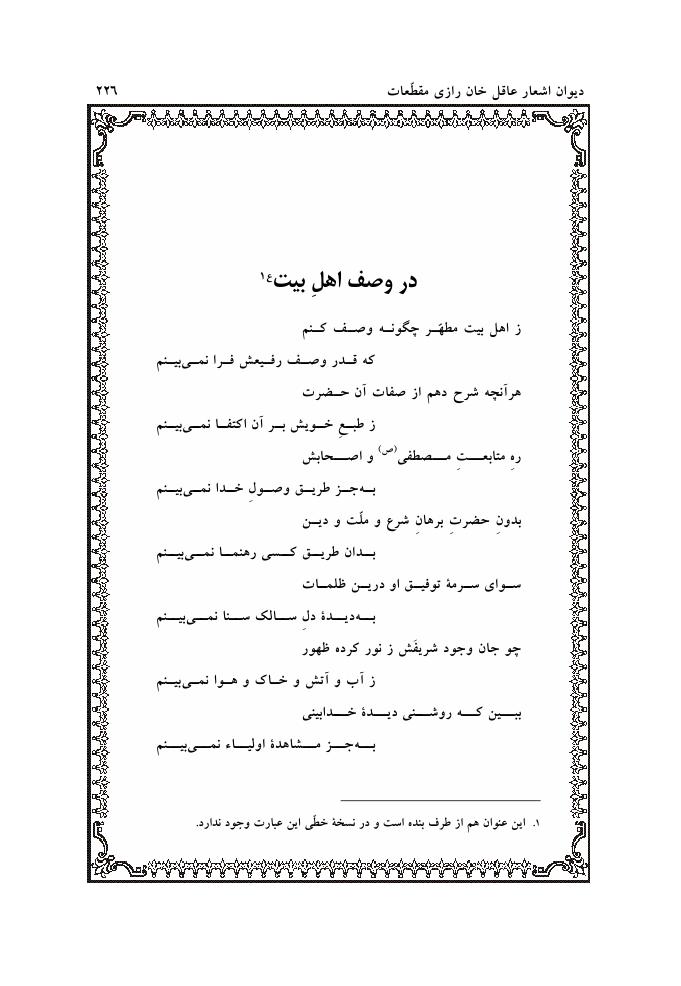 دیوان اشعار عاقل خان رازی مقطّعات ۲۲۶
در وصف اهلِ بیت ع۱
ز اهل بیت مطهّر چگونه وصف کنم
که قدر وصف رفیعش فرا نمی‌بینم
هرآنچه شرح دهم از صفات آن حضرت
ز طبعِ خویش بر آن اکتفا نمی‌بینم
رهِ متابعتِ مصطفی(ص) و اصحابش
به‌جز طریق وصولِ خدا نمی‌بینم
بدونِ حضرتِ برهانِ شرع و ملّت و دین
بدان طریق کسی رهنما نمی‌بینم
سوای سرمۀ توفیق او درین ظلمات
به‌دیدۀ دلِ سالک سنا نمی‌بینم
چو جان وجود شریفَش ز نور کرده ظهور
ز آب و آتش و خاک و هوا نمی‌بینم
ببین که روشنی دیدۀ خدابینی
به‌جز مشاهدۀ اولیاء نمی‌بینم
۱. این عنوان هم از طرف بنده است و در نسخۀ خطّی این عبارت وجود ندارد.